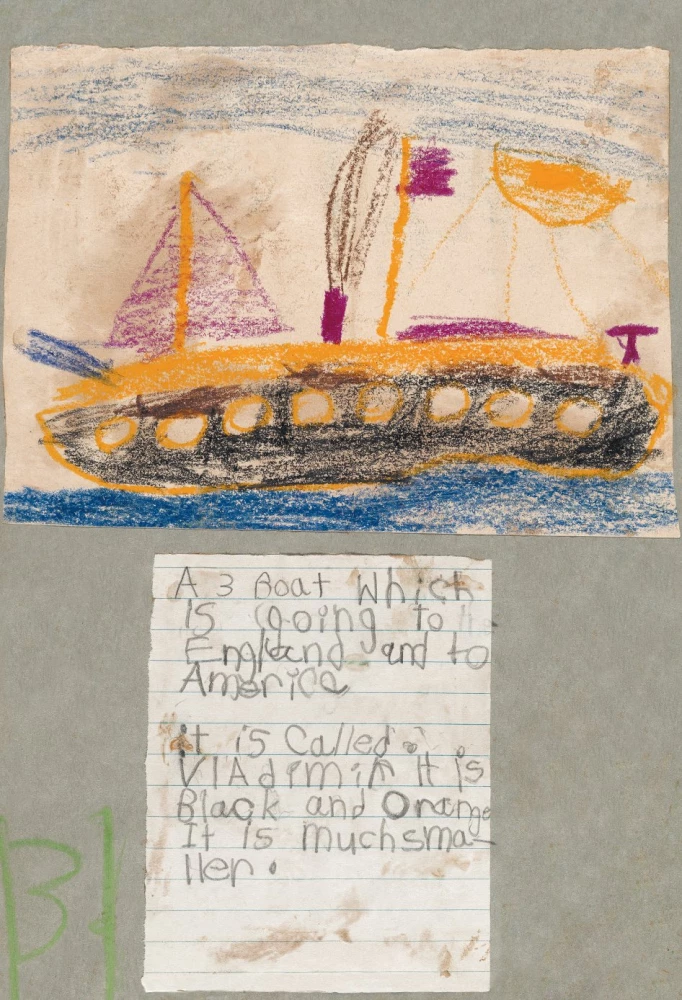 A 3 Boat Which
is Going to
England and to
America
it is Called.
VlAdimir It is
Black and Orange
It is muchsma-
ller.
B